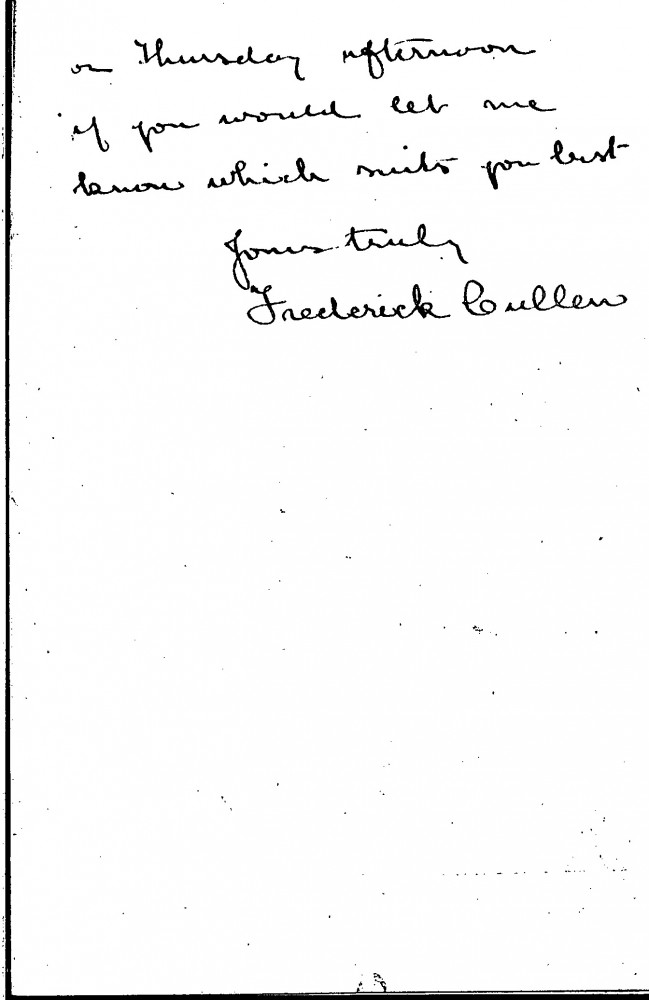 on Thursday afternoon
if you would let me
know which suits you best
Yours truly
Frederick Cullen